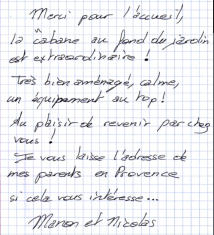 Merci pour l'accueil,
la cabane au fond du jardin
est extraordinaire !
Très bien aménagé, calme,
un équipement au top !
Au plaisir de revenir par chez
vous !
Je vous laisse l'adresse de
mes parents en Provence
si cela vous intéresse...
Manon et Nicolas